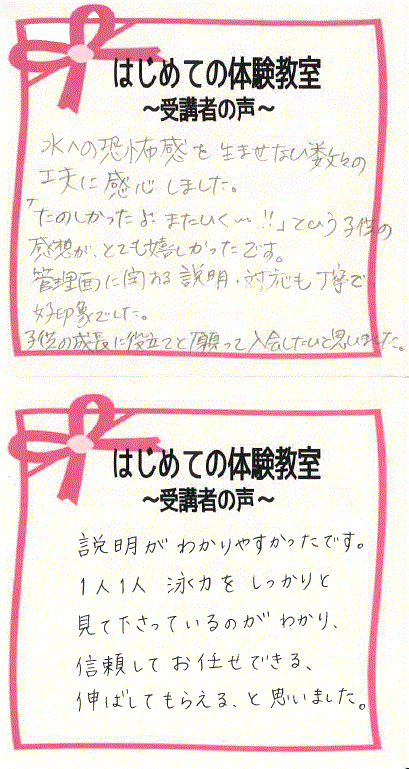 はじめての体験教室
～受講者の声～
水への恐怖感を生ませない数々の
工夫に感心しました。
「たのしかったよ。またいく～!!」という子供の
感想が、とても嬉しかったです。
管理面に関わる説明・対応も丁寧で、
好印象でした。
子供の成長に役立てと願って入会したいと思いました。
はじめての体験教室
～受講者の声～
説明がわかりやすかったです。
1人1人 泳力をしっかりと
見て下さっているのがわかり、
信頼してお任せできる、
伸ばしてもらえる、と思いました。